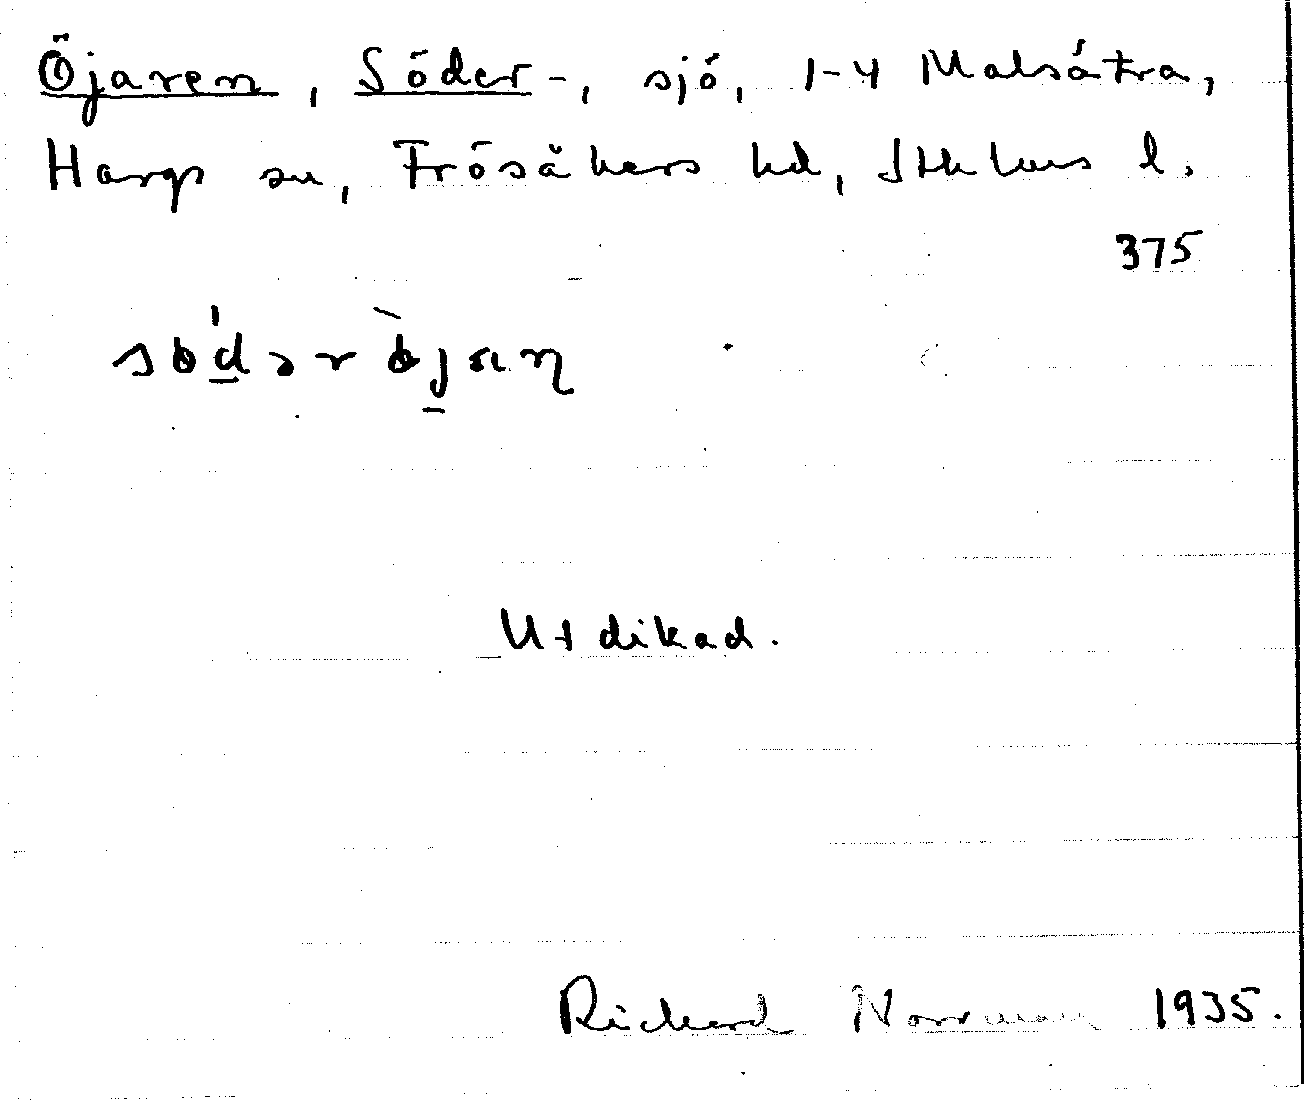 Öjaren, Söder-, sjö, 1-4 Malsätra,
Hargs sn, Frösåkers hd, Sthlms l.
375
södəröjan
Utdikad.
Rickard Norrman 1935.